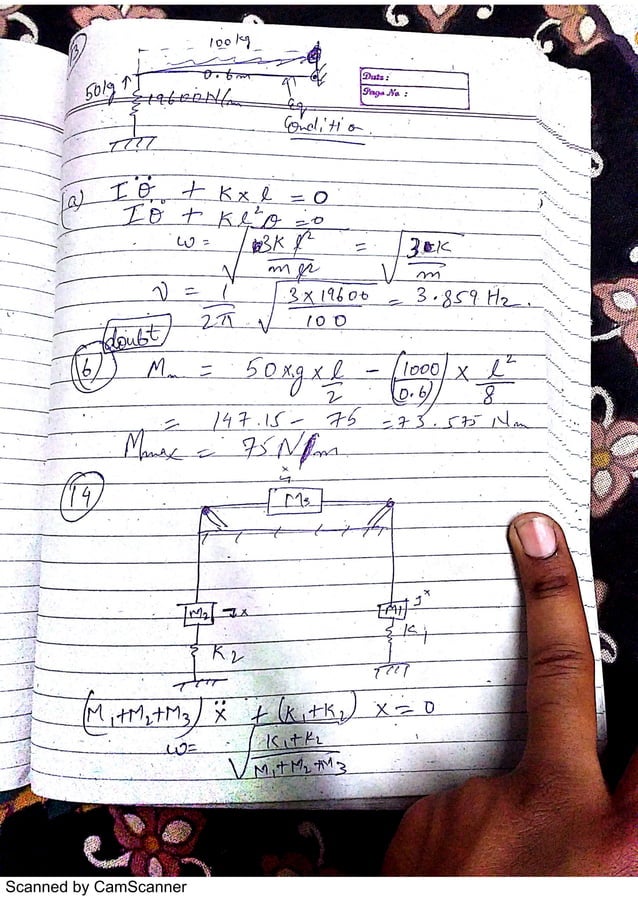 13
100kg
0.6m
Date :
Page No. :
50kg
19600N/m
Eq
Condition.
a) Iθ̈ + K x l = 0
Iθ̈ + Kl²θ = 0
ω = √(3K l² / m l²) = √(3K / m)
ν = 1/2π √(3 x 19600 / 100) = 3.859 Hz.
doubt
(b) Mm = 50 x g x l/2 - (1000/0.6) x l²/8
= 147.15 - 75 = 73.575 Nm
Mmax = 75 N/m
14
x
M3
M2 x
M1 x
K2
K1
(M1+M2+M3) ẍ + (K1+K2) x = 0
ω = √(K1+K2 / M1+M2+M3)
Scanned by CamScanner